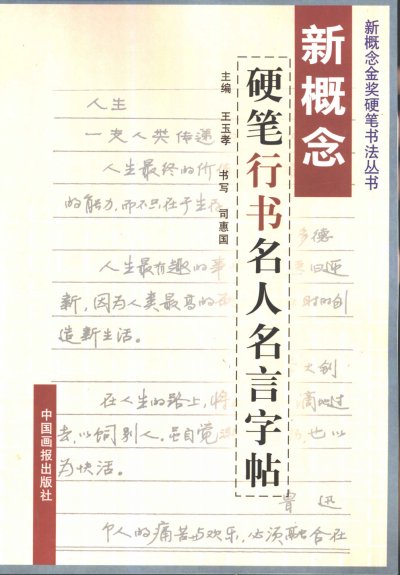 新概念金奖硬笔书法丛书
新概念
硬笔行书名人名言字帖
主编 王玉孝 书写 司惠国
中国画报出版社
人生
一夹人类传递
人生最终的价
的能力,而不只在于生存
多德
人生最有趣的事
旧迎
新,因为人类最高的
时时创
造新生活。
大钊
在人生的路上,将
滴地过
去,以饲别人,虽自觉
也以
为快活。
鲁迅
个人的痛苦与欢乐,必须融合在